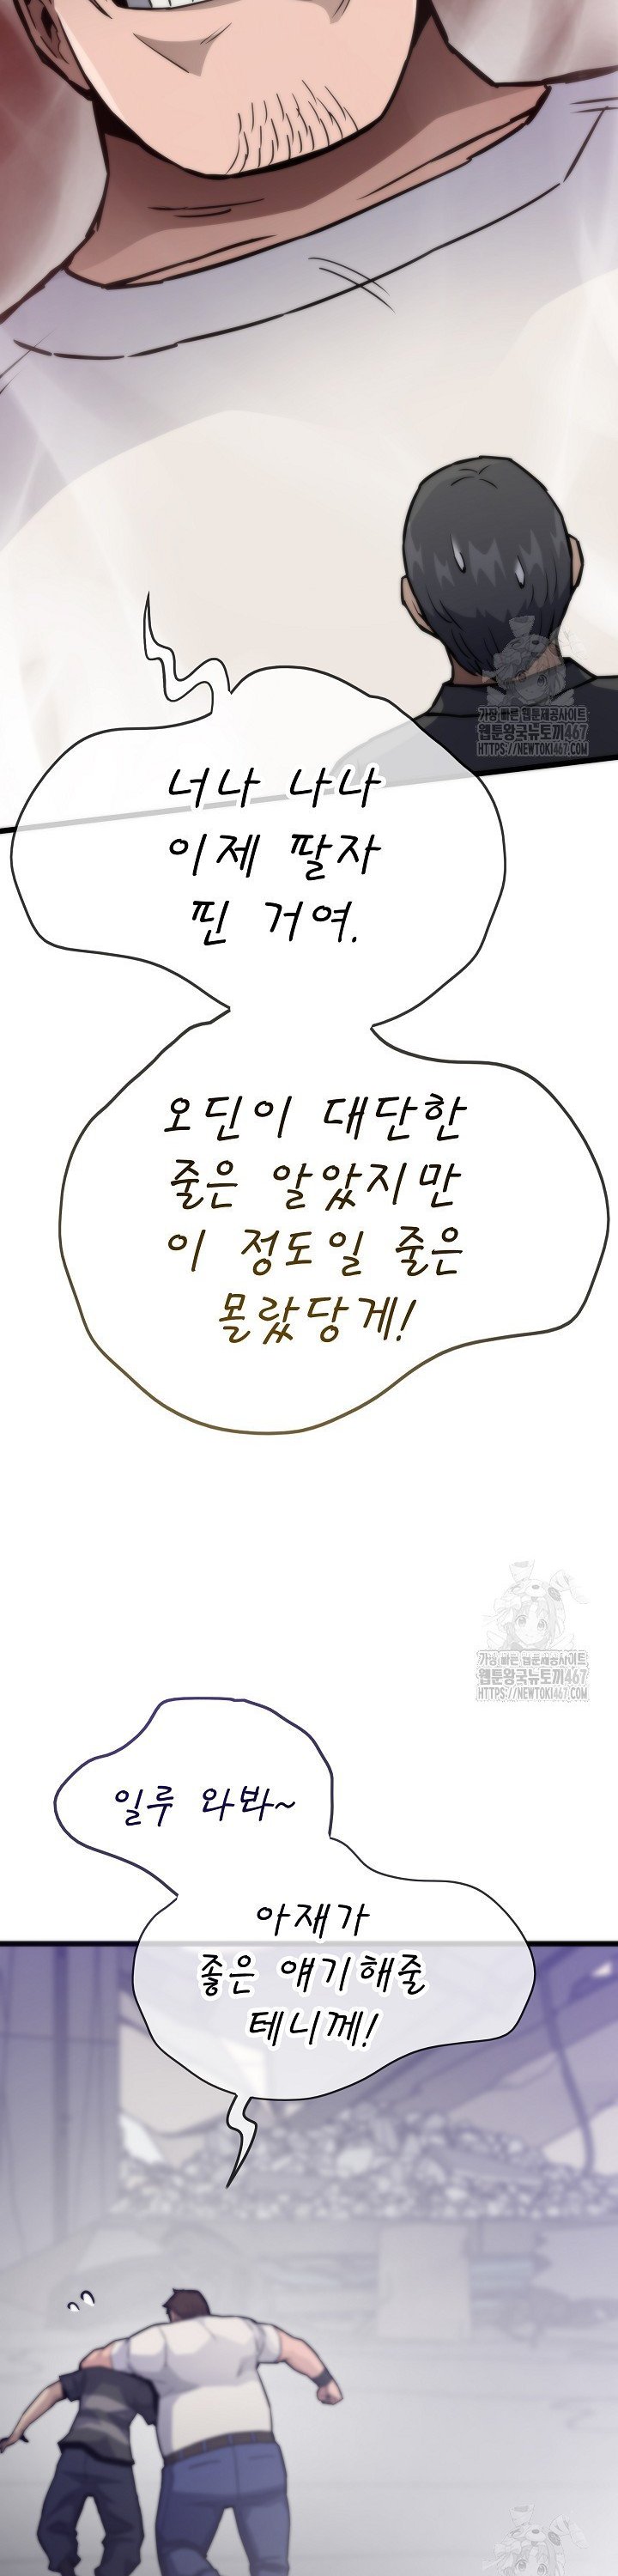 가장 빠른 웹툰제공사이트
웹툰왕국뉴토끼467
HTTPS://NEWTOKI467.COM
너나 나나
이제 팔자
핀 거여.
오딘이 대단한
줄은 알았지만
이 정도일 줄은
몰랐당게!
가장 빠른 웹툰제공사이트
웹툰왕국뉴토끼467
HTTPS://NEWTOKI467.COM
일루 와봐~
아재가
좋은 얘기해줄
테니께!